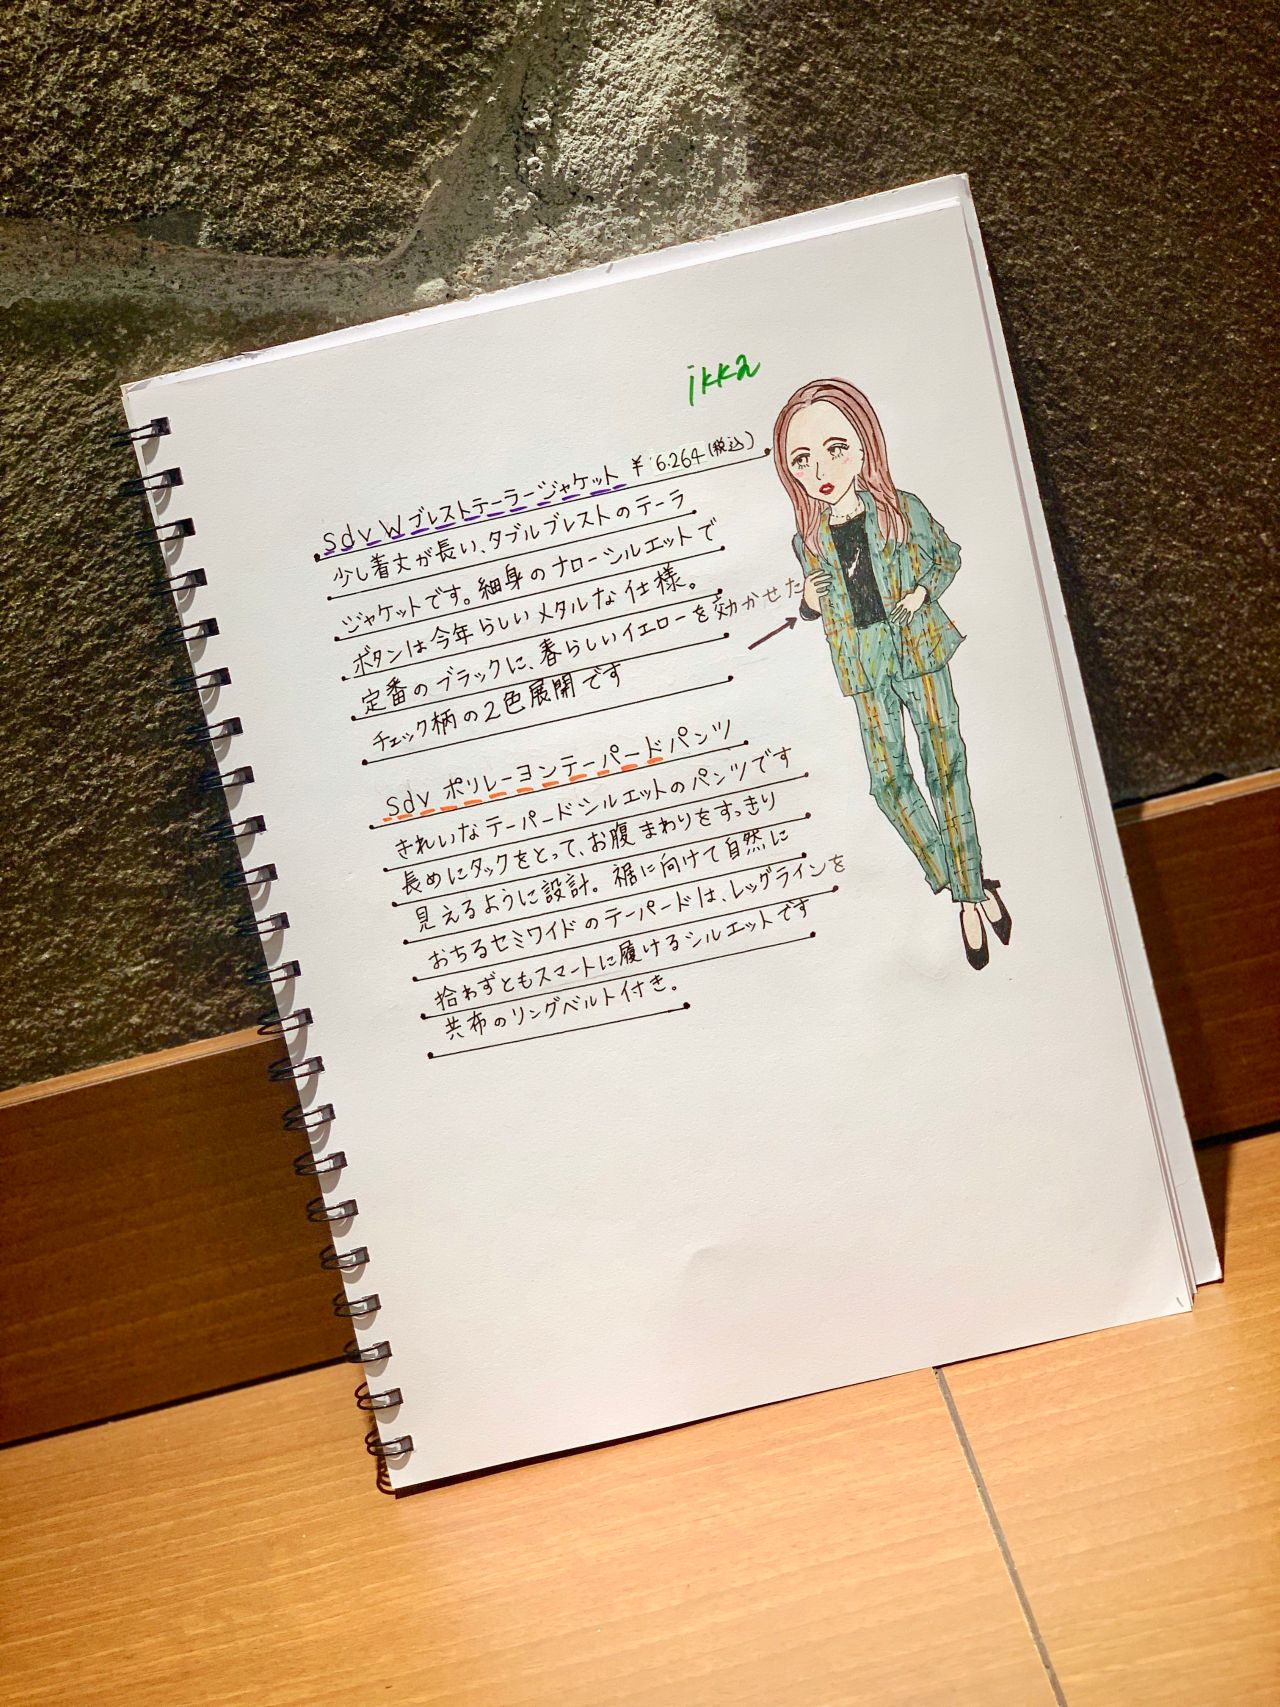 ikka
sdv Wブレストテーラージャケット ¥6.264(税込)
少し着丈が長い、ダブルブレストのテーラ
ジャケットです。細身のナローシルエットで
ボタンは今年らしいメタルな仕様。
定番のブラックに、春らしいイエローを効かせた
チェック柄の2色展開です
sdv ポリレーヨンテーパードパンツ
きれいなテーパードシルエットのパンツです
長めにタックをとって、お腹まわりをすっきり
見えるように設計。裾に向けて自然に
おちるセミワイドのテーパードは、レッグラインを
拾わずともスマートに履けるシルエットです
共布のリングベルト付き。